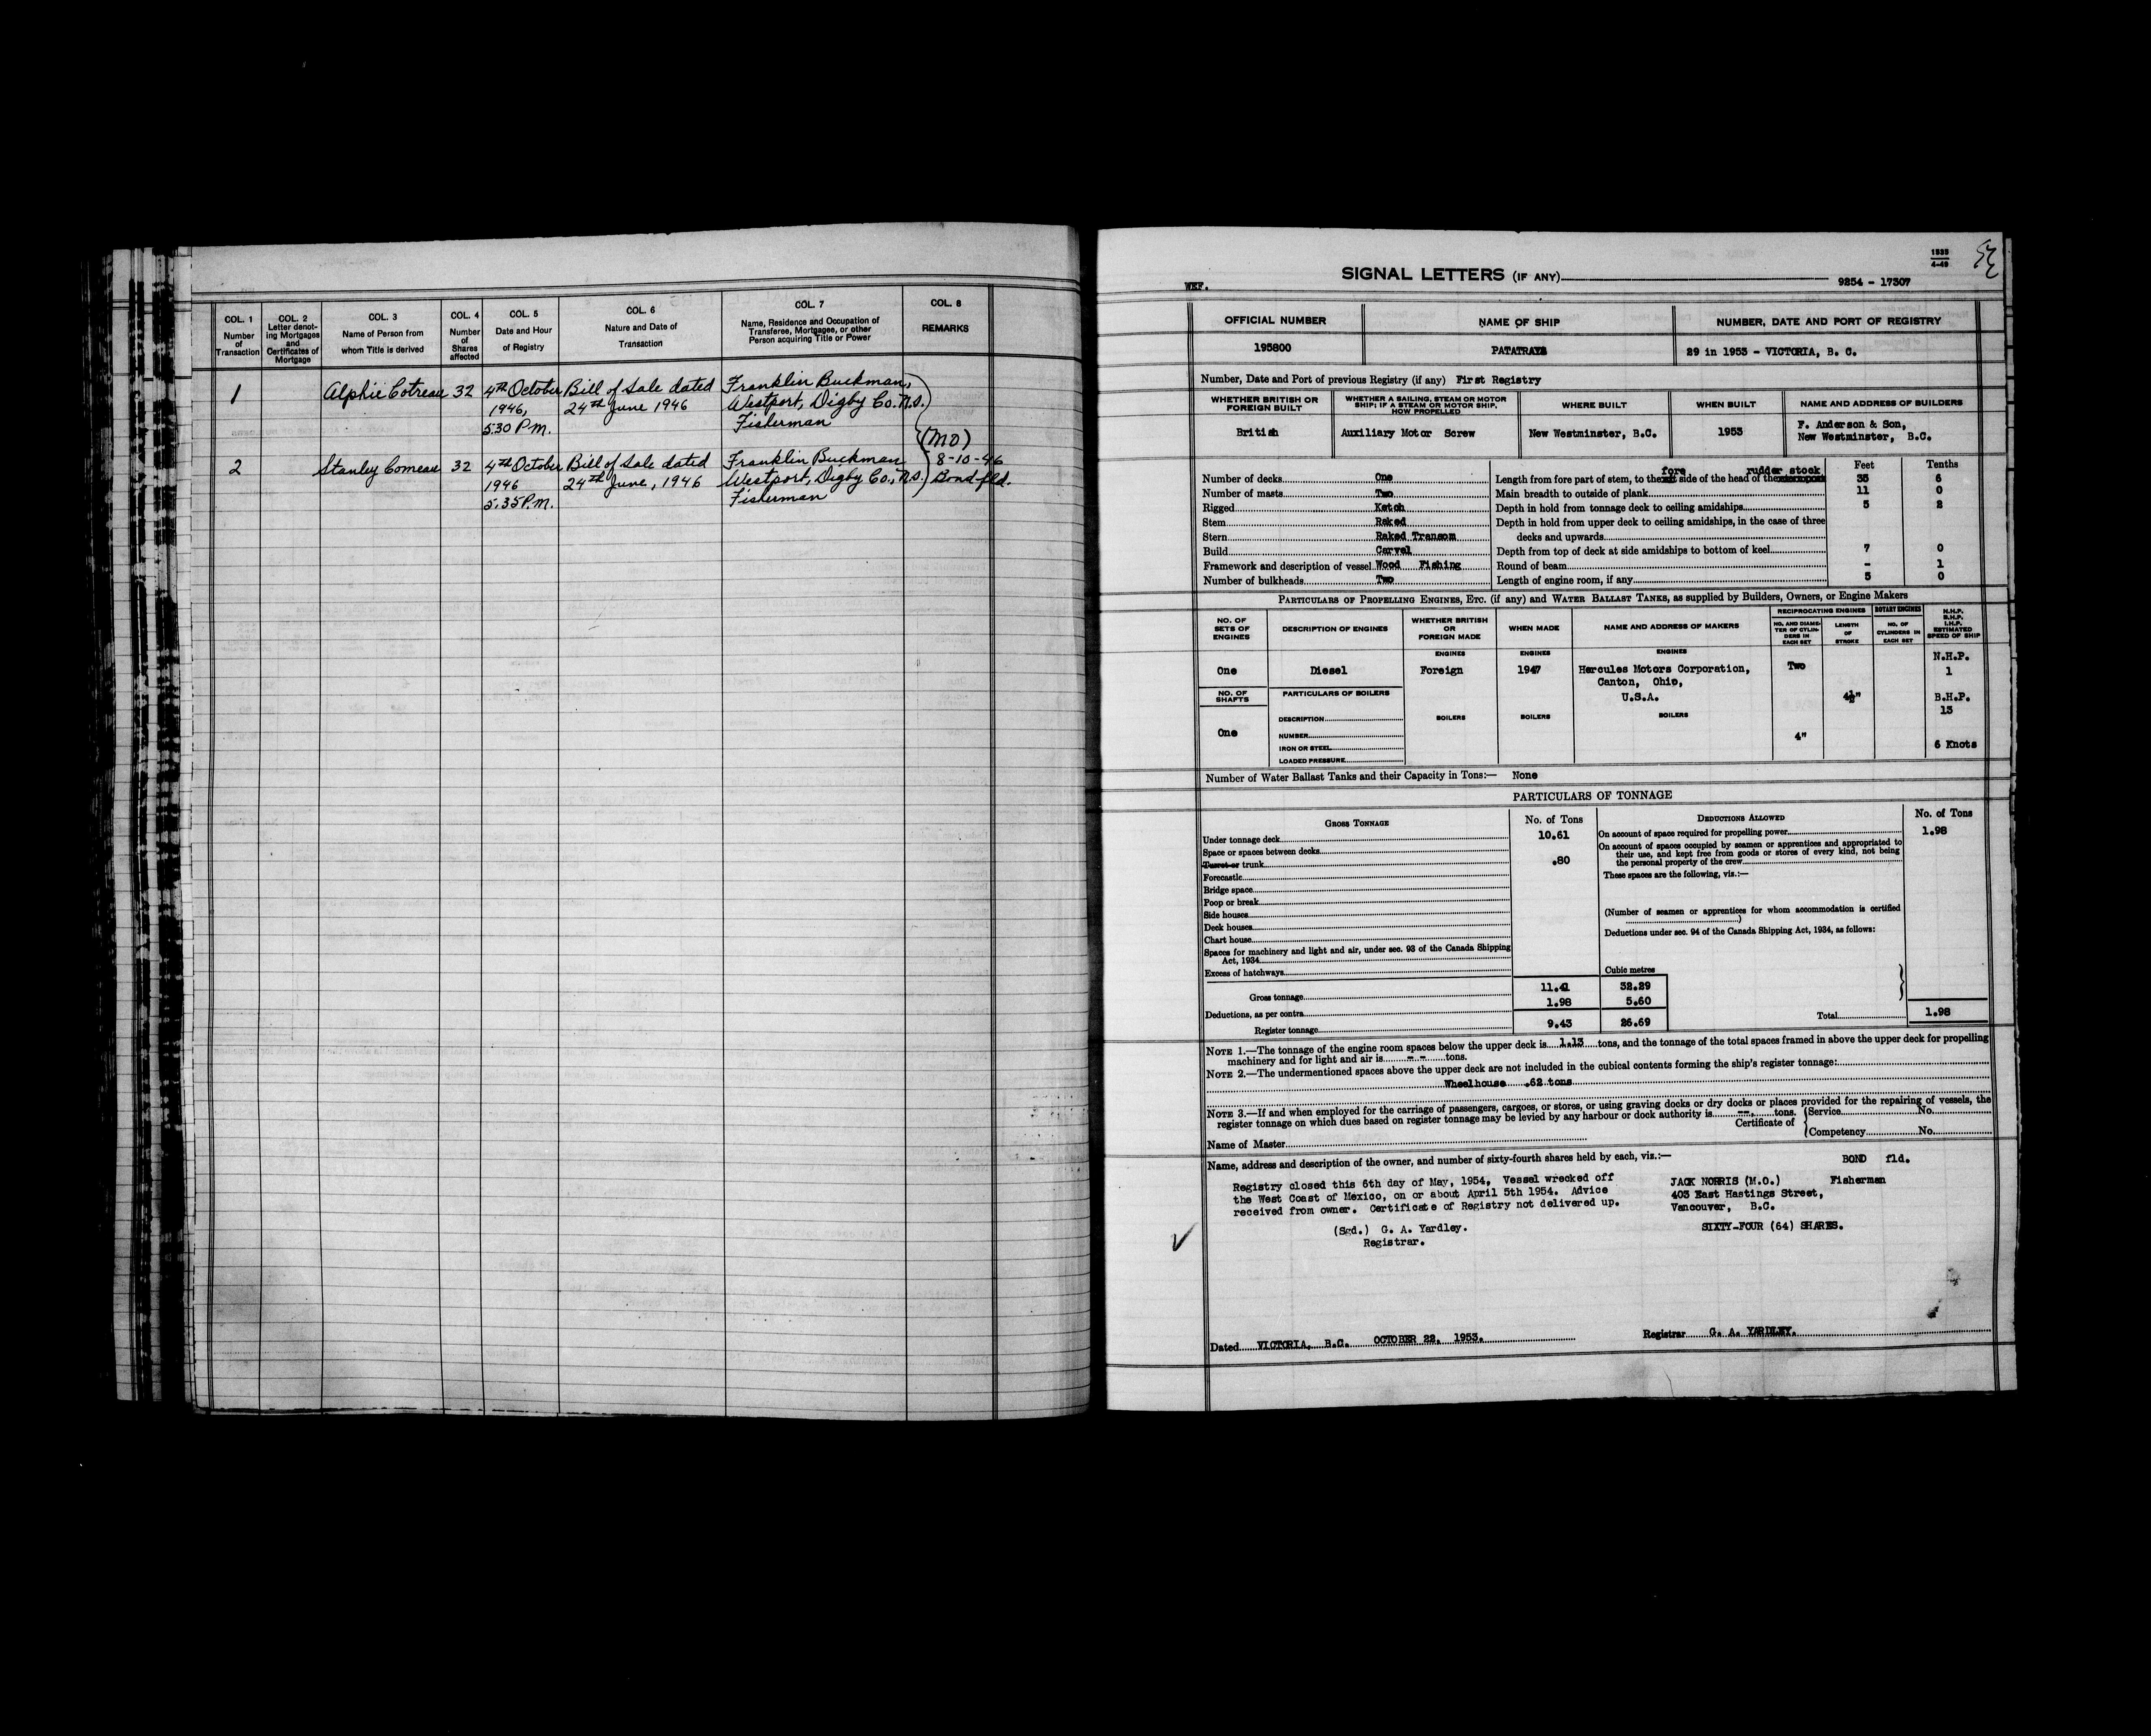 COL. 1
Number
of
Transaction
COL. 2
Letter denot-
ing Mortgages
and
Certificates of
Mortgage
COL. 3
Name of Person from
whom Title is derived
COL. 4
Number
of
Shares
affected
COL. 5
Date and Hour
of Registry
COL. 6
Nature and Date of
Transaction
COL. 7
Name, Residence and Occupation of
Transferee, Mortgagee, or other
Person acquiring Title or Power
COL. 8
REMARKS
1 Alphie Cotreau 32 4th October Bill of Sale dated Franklin Buckman,
1946, 24th June 1946 Westport, Digby Co. N.S.
5.30 P.M. Fisherman
(MO)
2 Stanley Comeau 32 4th October Bill of Sale dated Franklin Buckman 8-10-46
1946 24th June, 1946 Westport, Digby Co., N.S. Bond fld.
5.35 P.M. Fisherman
1835
4-49
SIGNAL LETTERS (IF ANY)
WEF. 9254 - 17307
OFFICIAL NUMBER NAME OF SHIP NUMBER, DATE AND PORT OF REGISTRY
195800 29 in 1953 - VICTORIA, B. C.
Number, Date and Port of previous Registry (if any) First Registry
WHETHER BRITISH OR
FOREIGN BUILT
WHETHER A SAILING, STEAM OR MOTOR
SHIP; IF A STEAM OR MOTOR SHIP,
HOW PROPELLED
WHERE BUILT
WHEN BUILT
NAME AND ADDRESS OF BUILDERS
British Auxiliary Motor Screw New Westminster, B.C. 1953 F. Anderson & Son,
New Westminster, B.C.
Feet Tenths
Number of decks One
Number of masts Two
Rigged Ketch
Stem Raked
Stern Raked Transom
Build Carvel
Framework and description of vessel Wood Fishing
Number of bulkheads Two
fore rudder stock
Length from fore part of stem, to the aft side of the head of the sternpost 35 6
Main breadth to outside of plank 11 0
Depth in hold from tonnage deck to ceiling amidships 5 2
Depth in hold from upper deck to ceiling amidships, in the case of three
decks and upwards
Depth from top of deck at side amidships to bottom of keel 7 0
Round of beam - 1
Length of engine room, if any 5 0
PARTICULARS OF PROPELLING ENGINES, ETC. (if any) and WATER BALLAST TANKS, as supplied by Builders, Owners, or Engine Makers
NO. OF
SETS OF
ENGINES
DESCRIPTION OF ENGINES
WHETHER BRITISH
OR
FOREIGN MADE
WHEN MADE
NAME AND ADDRESS OF MAKERS
RECIPROCATING ENGINES
NO. AND DIAME-
TER OF CYLIN-
DERS IN
EACH SET
LENGTH
OF
STROKE
ROTARY ENGINES
NO. OF
CYLINDERS IN
EACH SET
N.H.P.
B.H.P.
I.H.P.
ESTIMATED
SPEED OF SHIP
ENGINES ENGINES ENGINES
One Diesel Foreign 1947 Hercules Motors Corporation,
Canton, Ohio,
U.S.A.
Two
4½"
4"
N.H.P.
1
B.H.P.
13
6 Knots
NO. OF
SHAFTS
One
PARTICULARS OF BOILERS
DESCRIPTION
NUMBER
IRON OR STEEL
LOADED PRESSURE
BOILERS BOILERS BOILERS
Number of Water Ballast Tanks and their Capacity in Tons:— None
PARTICULARS OF TONNAGE
GROSS TONNAGE No. of Tons
Under tonnage deck 10.61
Space or spaces between decks
Turret or trunk .80
Forecastle
Bridge space
Poop or break
Side houses
Deck houses
Chart house
Spaces for machinery and light and air, under sec. 93 of the Canada Shipping
Act, 1934
Excess of hatchways
Cubic metres
Gross tonnage 11.41 32.29
Deductions, as per contra 1.98 5.60
Register tonnage 9.43 26.69
DEDUCTIONS ALLOWED No. of Tons
On account of space required for propelling power 1.98
On account of spaces occupied by seamen or apprentices and appropriated to
their use, and kept free from goods or stores of every kind, not being
the personal property of the crew
These spaces are the following, viz.:—
(Number of seamen or apprentices for whom accommodation is certified
)
Deductions under sec. 94 of the Canada Shipping Act, 1934, as follows:
Total 1.98
NOTE 1.—The tonnage of the engine room spaces below the upper deck is 1.13 tons, and the tonnage of the total spaces framed in above the upper deck for propelling
machinery and for light and air is - - tons.
NOTE 2.—The undermentioned spaces above the upper deck are not included in the cubical contents forming the ship's register tonnage:
Wheelhouse .62 tons
NOTE 3.—If and when employed for the carriage of passengers, cargoes, or stores, or using graving docks or dry docks or places provided for the repairing of vessels, the
register tonnage on which dues based on register tonnage may be levied by any harbour or dock authority is -- tons.
Certificate of
Service No.
Competency No.
Name of Master
Name, address and description of the owner, and number of sixty-fourth shares held by each, viz.:—
BOND fld.
Registry closed this 6th day of May, 1954, Vessel wrecked off
the West Coast of Mexico, on or about April 5th 1954. Advice
received from owner. Certificate of Registry not delivered up.
(Sgd.) G. A. Yardley.
Registrar.
JACK NORRIS (M.O.) Fisherman
403 East Hastings Street,
Vancouver, B.C.
SIXTY-FOUR (64) SHARES.
Dated VICTORIA, B.C. OCTOBER 22, 1953.
Registrar G. A. YARDLEY.